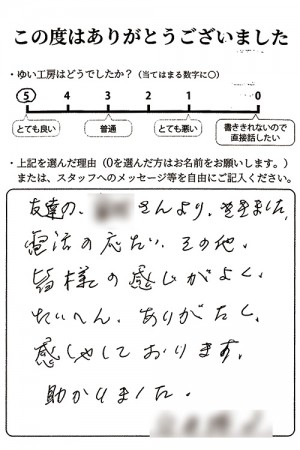 この度はありがとうございました
・ゆい工房はどうでしたか？（当てはまる数字に○）
⑤ 4 3 2 1 0
とても良い 普通 とても悪い 書ききれないので直接話したい
・上記を選んだ理由（0を選んだ方はお名前をお願いします。）
または、スタッフへのメッセージ等を自由にご記入ください。
友達の、 さんより、ききました
電話の応たい、その他、
皆様の感じがよく、
たいへん、ありがたく、
感しゃしております。
助かりました。